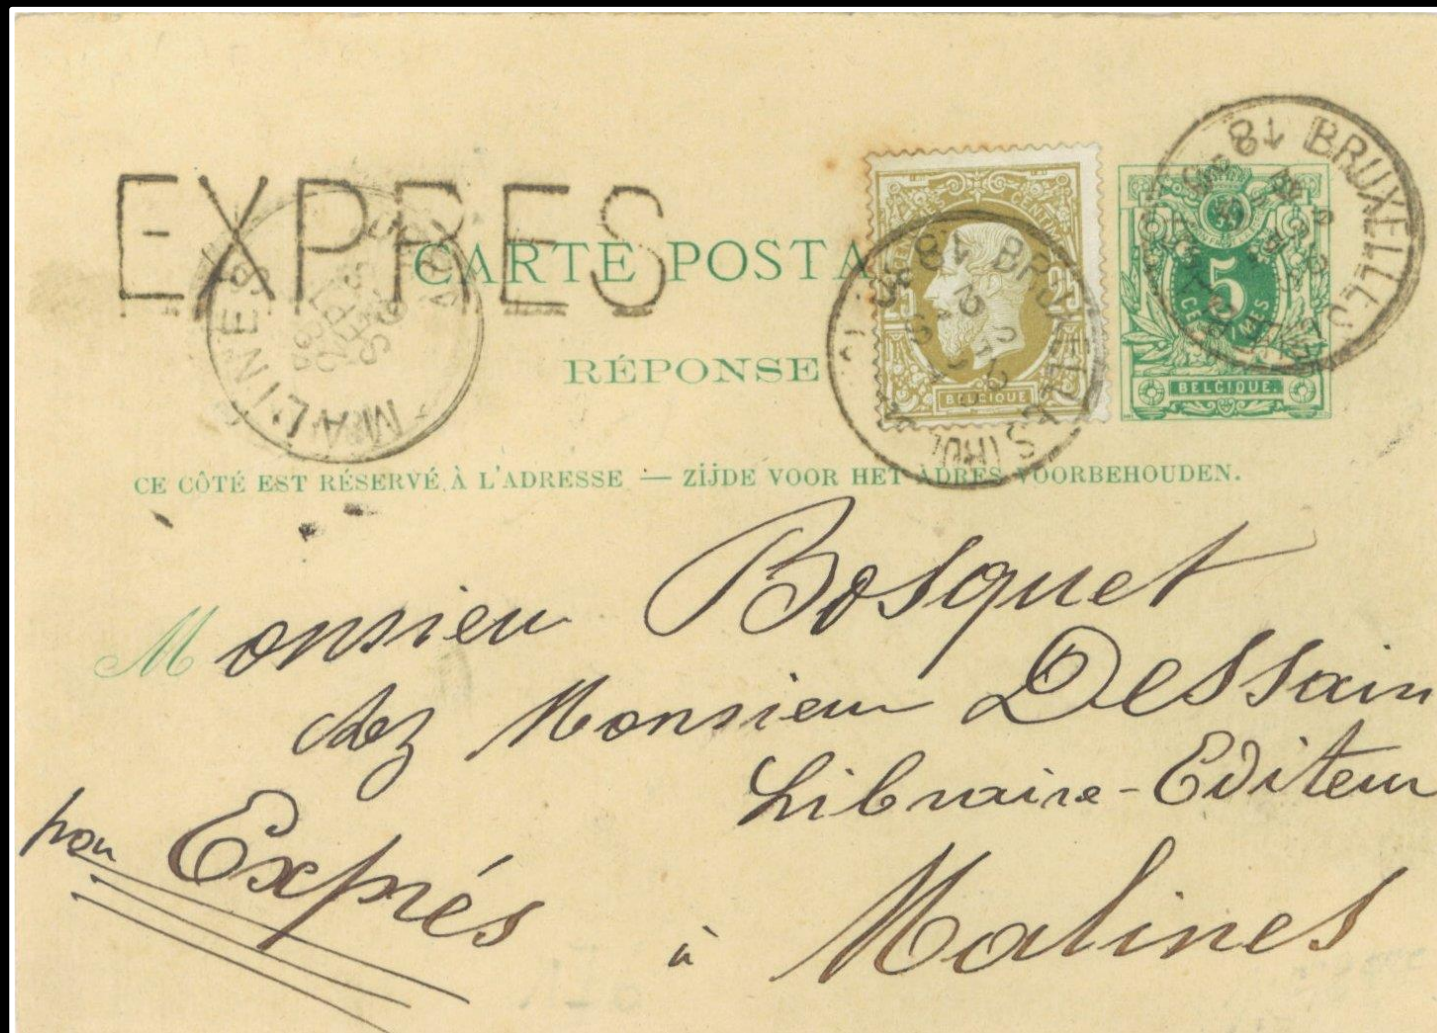 EXPRES
CARTE POSTA
RÉPONSE
25
CENTIMES
BELGIQUE
5
CENTIMES
BELGIQUE.
BRUXELLES
18
BRUXELLES
18
MALINES
CE CÔTÉ EST RÉSERVÉ À L'ADRESSE — ZIJDE VOOR HET ADRES VOORBEHOUDEN.
Monsieur Bosquet
chez Monsieur Dessain
Libraire-Editeur
par Exprés à Malines